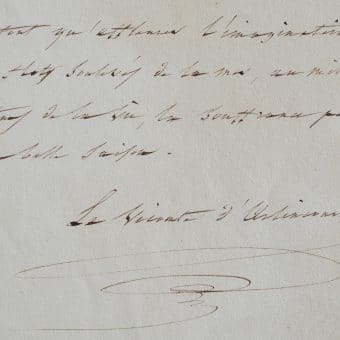 tout qu'effleurer l'imagination
flots soulevés de la mer, au mi
de la vie, la souffrance p
belle saison.
Le Vicomte d'Arlincour